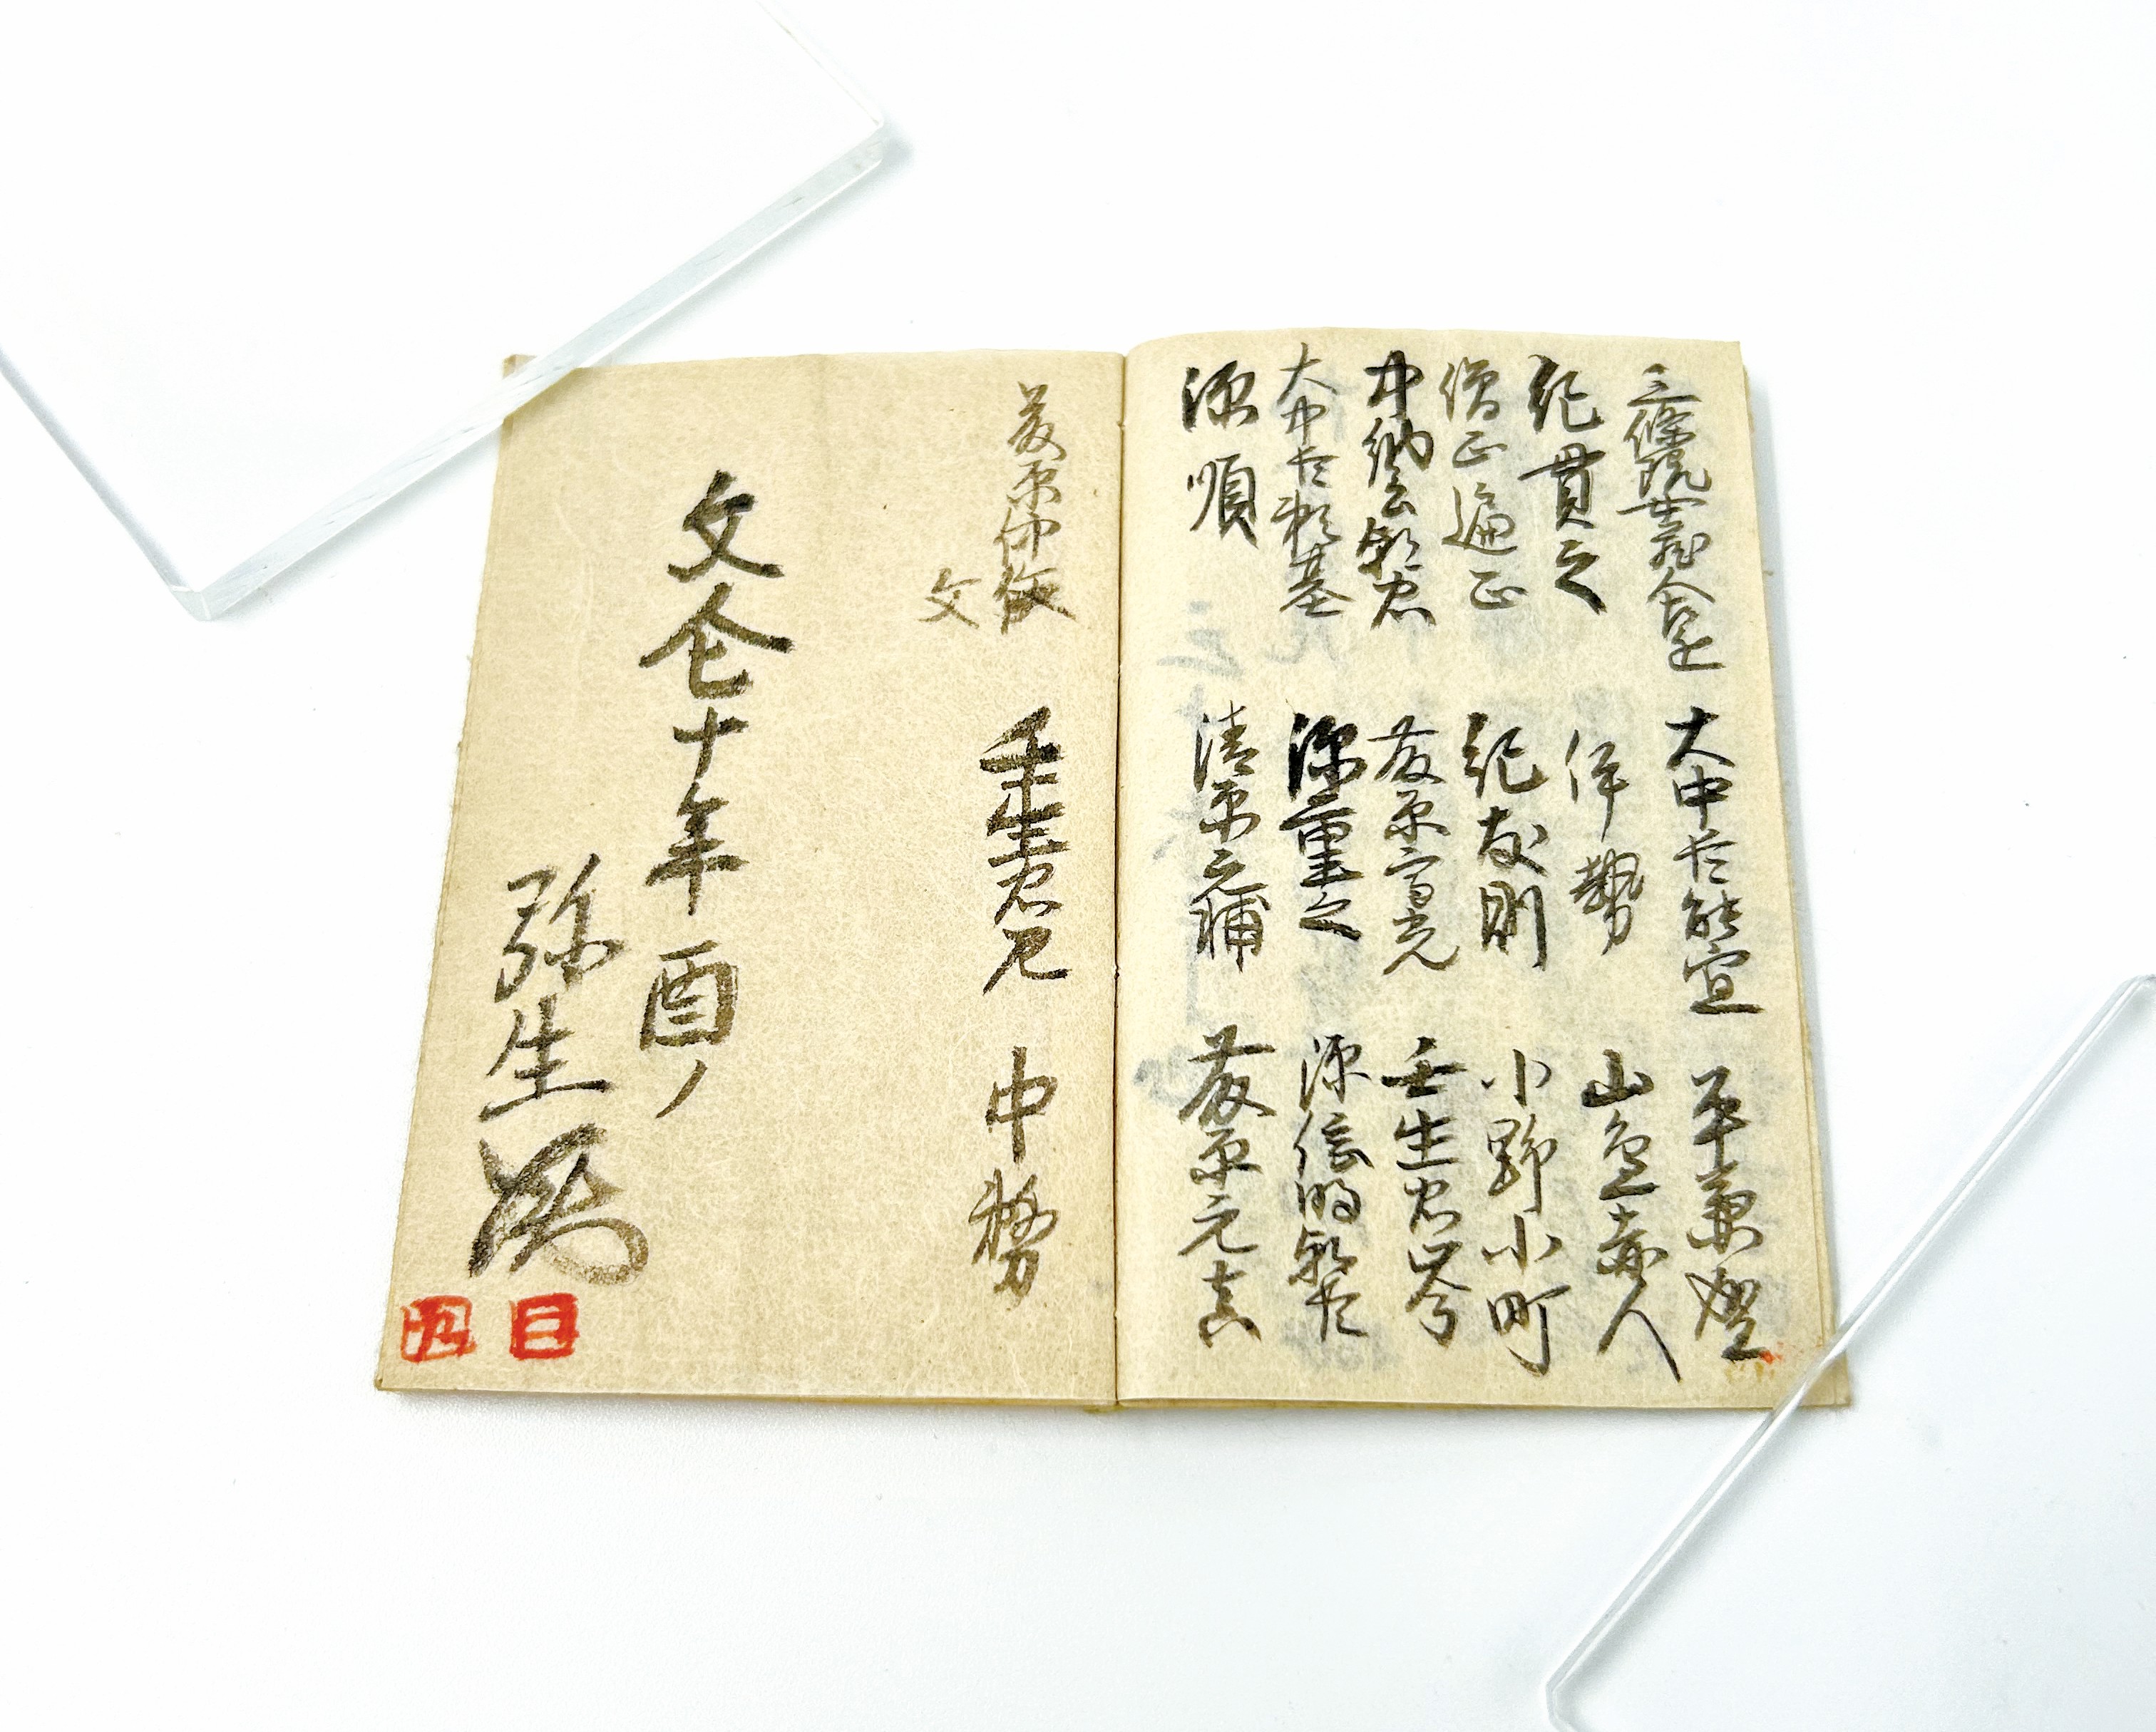 三條院女蔵人左近 大中臣能宣 平兼盛
紀貫之 伊勢 山邊赤人
僧正遍正 紀友則 小野小町
中納言朝忠 藤原高光 壬生忠岑
大中臣頼基 源重之 源信明朝臣
源順 清原元輔 藤原元真
藤原仲 壬生忠見 中務
文
文化十年酉ノ
弥生